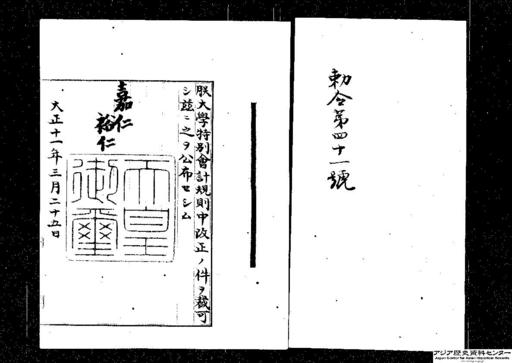 勅令第四十一號
朕大學特別會計規則中改正ノ件ヲ裁可
シ茲ニ之ヲ公布セシム
嘉仁
裕仁
天皇
御璽
大正十一年三月二十五日
アジア歴史資料センター
Japan Center for Asian Historical Records